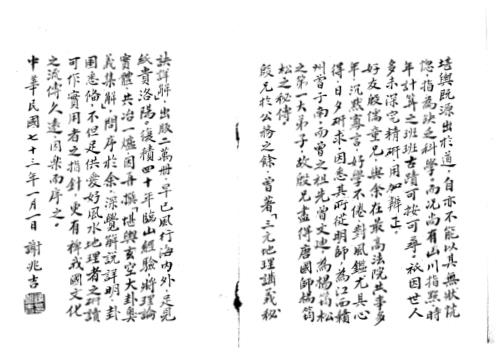 堪輿既源出於道，自亦不能以其無狀院
惚，指為缺乏科學，而況尚有山川指點，時
年計算之班班古蹟可按可尋，祇因世人
多未深究精研用加辨正。
好友殷儒童兄，與余在最高法院共事多
年，沉默寡言，好學不倦，對風鑑尤具心
得，日夕研求，因悉其所從明師，為江西贛
州曾子南，而曾之祖先曾文迪，為楊筠松
之第一大弟子，故殷兄盡得唐國師楊筠
松之秘傳。
殷兄於公務之餘，曾著「三元地理講義秘
訣詳解」，出版二萬冊，早已風行海內外，足見
紙貴洛陽，復積四十年臨山經驗，將理論
實體，共冶一爐，因再撰「堪輿玄空大卦奧
義集解」，問序於余，深覺解說詳明，卦
因悉備，不但足供愛好風水地理者之研讀
可作實用者之指針，更有裨我國文化
之流傳久遠，因樂而序之。
中華民國七十三年一月一日 謝兆吉